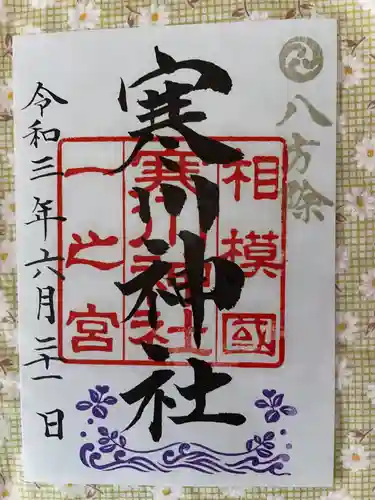 八方除
寒川神社
相模國
寒川神社
一之宮
令和三年六月二十一日